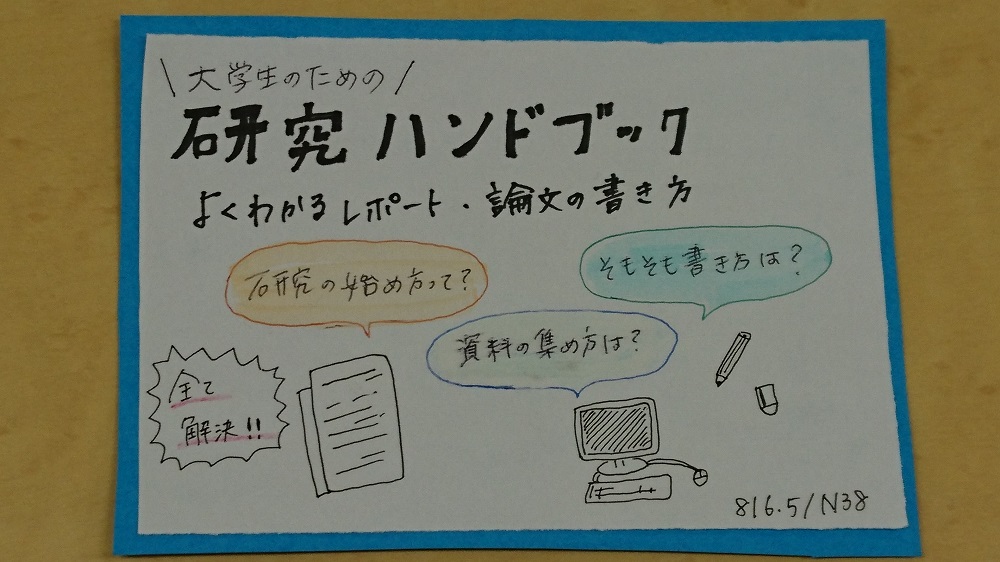 \大学生のための/
研究ハンドブック
よくわかるレポート・論文の書き方
研究の始め方って?
そもそも書き方は?
資料の集め方は?
全て
解決!!
816.5/N38